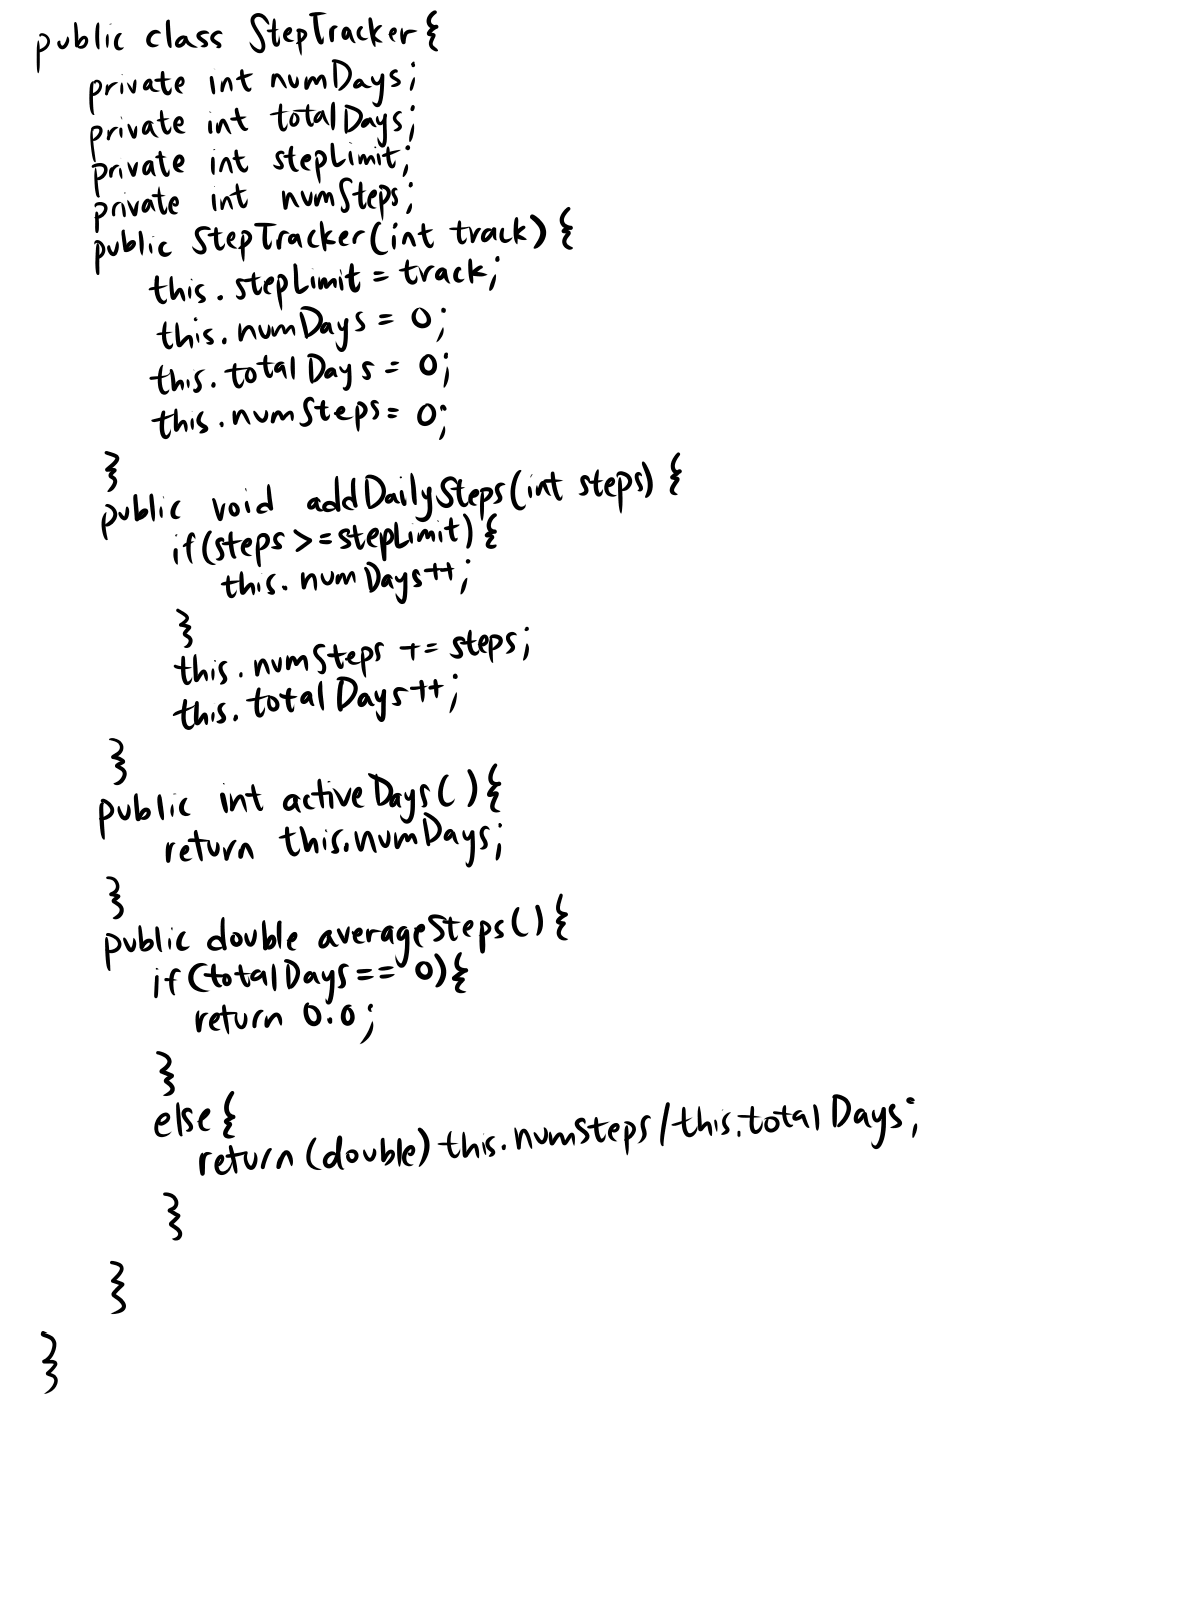 public class StepTracker{
private int numDays;
private int totalDays;
private int stepLimit;
private int numSteps;
public StepTracker(int track) {
this.stepLimit = track;
this.numDays = 0;
this.totalDays = 0;
this.numSteps = 0;
}
public void addDailySteps(int steps) {
if(steps >= stepLimit) {
this.numDays++;
}
this.numSteps += steps;
this.totalDays++;
}
public int activeDays( ){
return this.numDays;
}
public double averageSteps( ) {
if(totalDays == 0){
return 0.0;
}
else {
return (double) this.numSteps/this.totalDays;
}
}
}